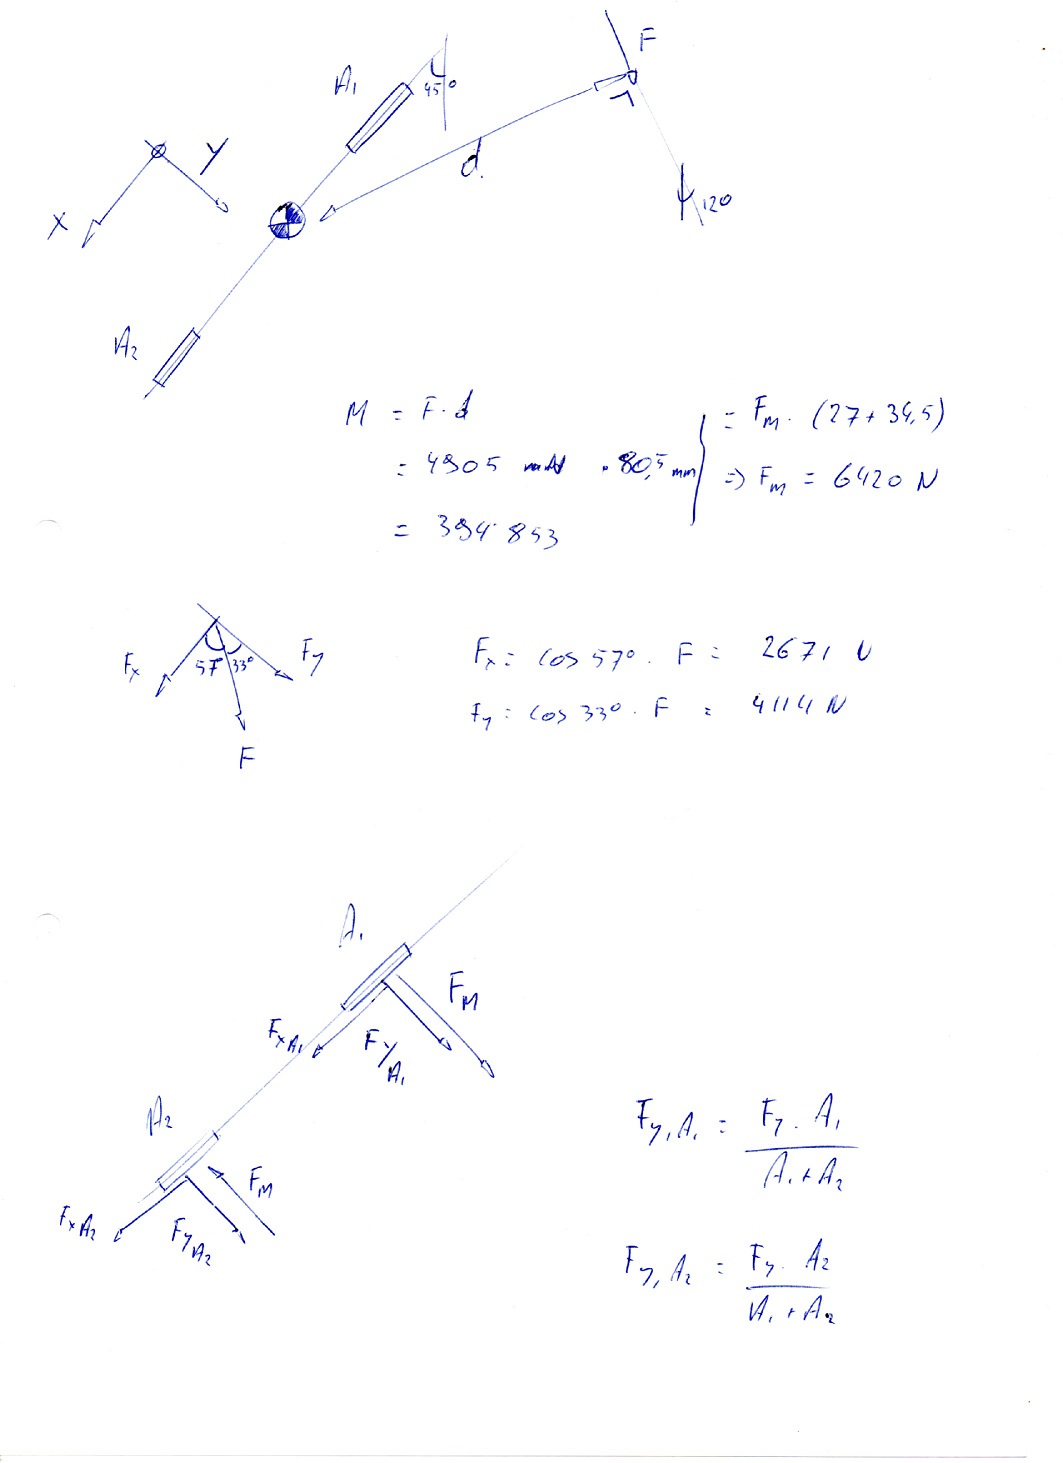 F
A₁
45°
y
d.
x
120
A₂
M = F·d
= 4905 · 80,5 mm
= 394 853
= Fm · (27 + 34,5)
=> Fm = 6420 N
Fx
57°
33°
Fy
F
Fx = cos 57° · F = 2671 N
Fy = cos 33° · F = 4114 N
A₁
FM
FxA₁
FyA₁
A₂
FM
FxA₂
FyA₂
Fy,A₁ = Fy · A₁ / A₁ + A₂
Fy,A₂ = Fy · A₂ / A₁ + A₂